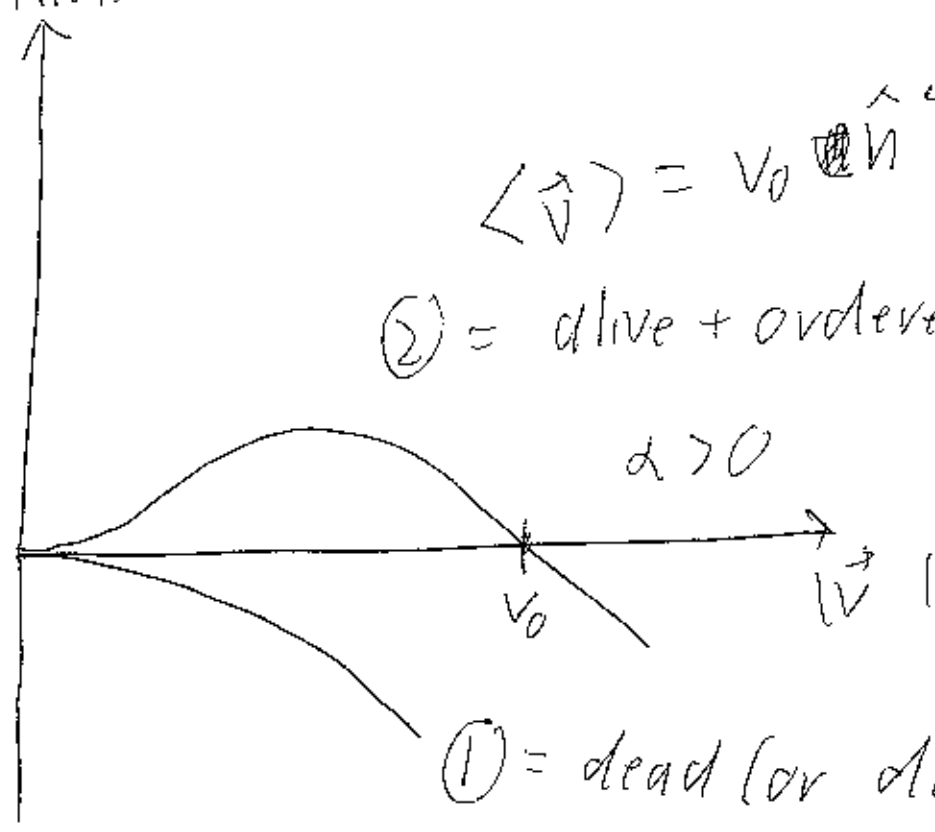 ⟨v⃗⟩ = v₀ n̂
② = alive + ordere
α > 0
v₀
|v⃗|
① = dead (or di